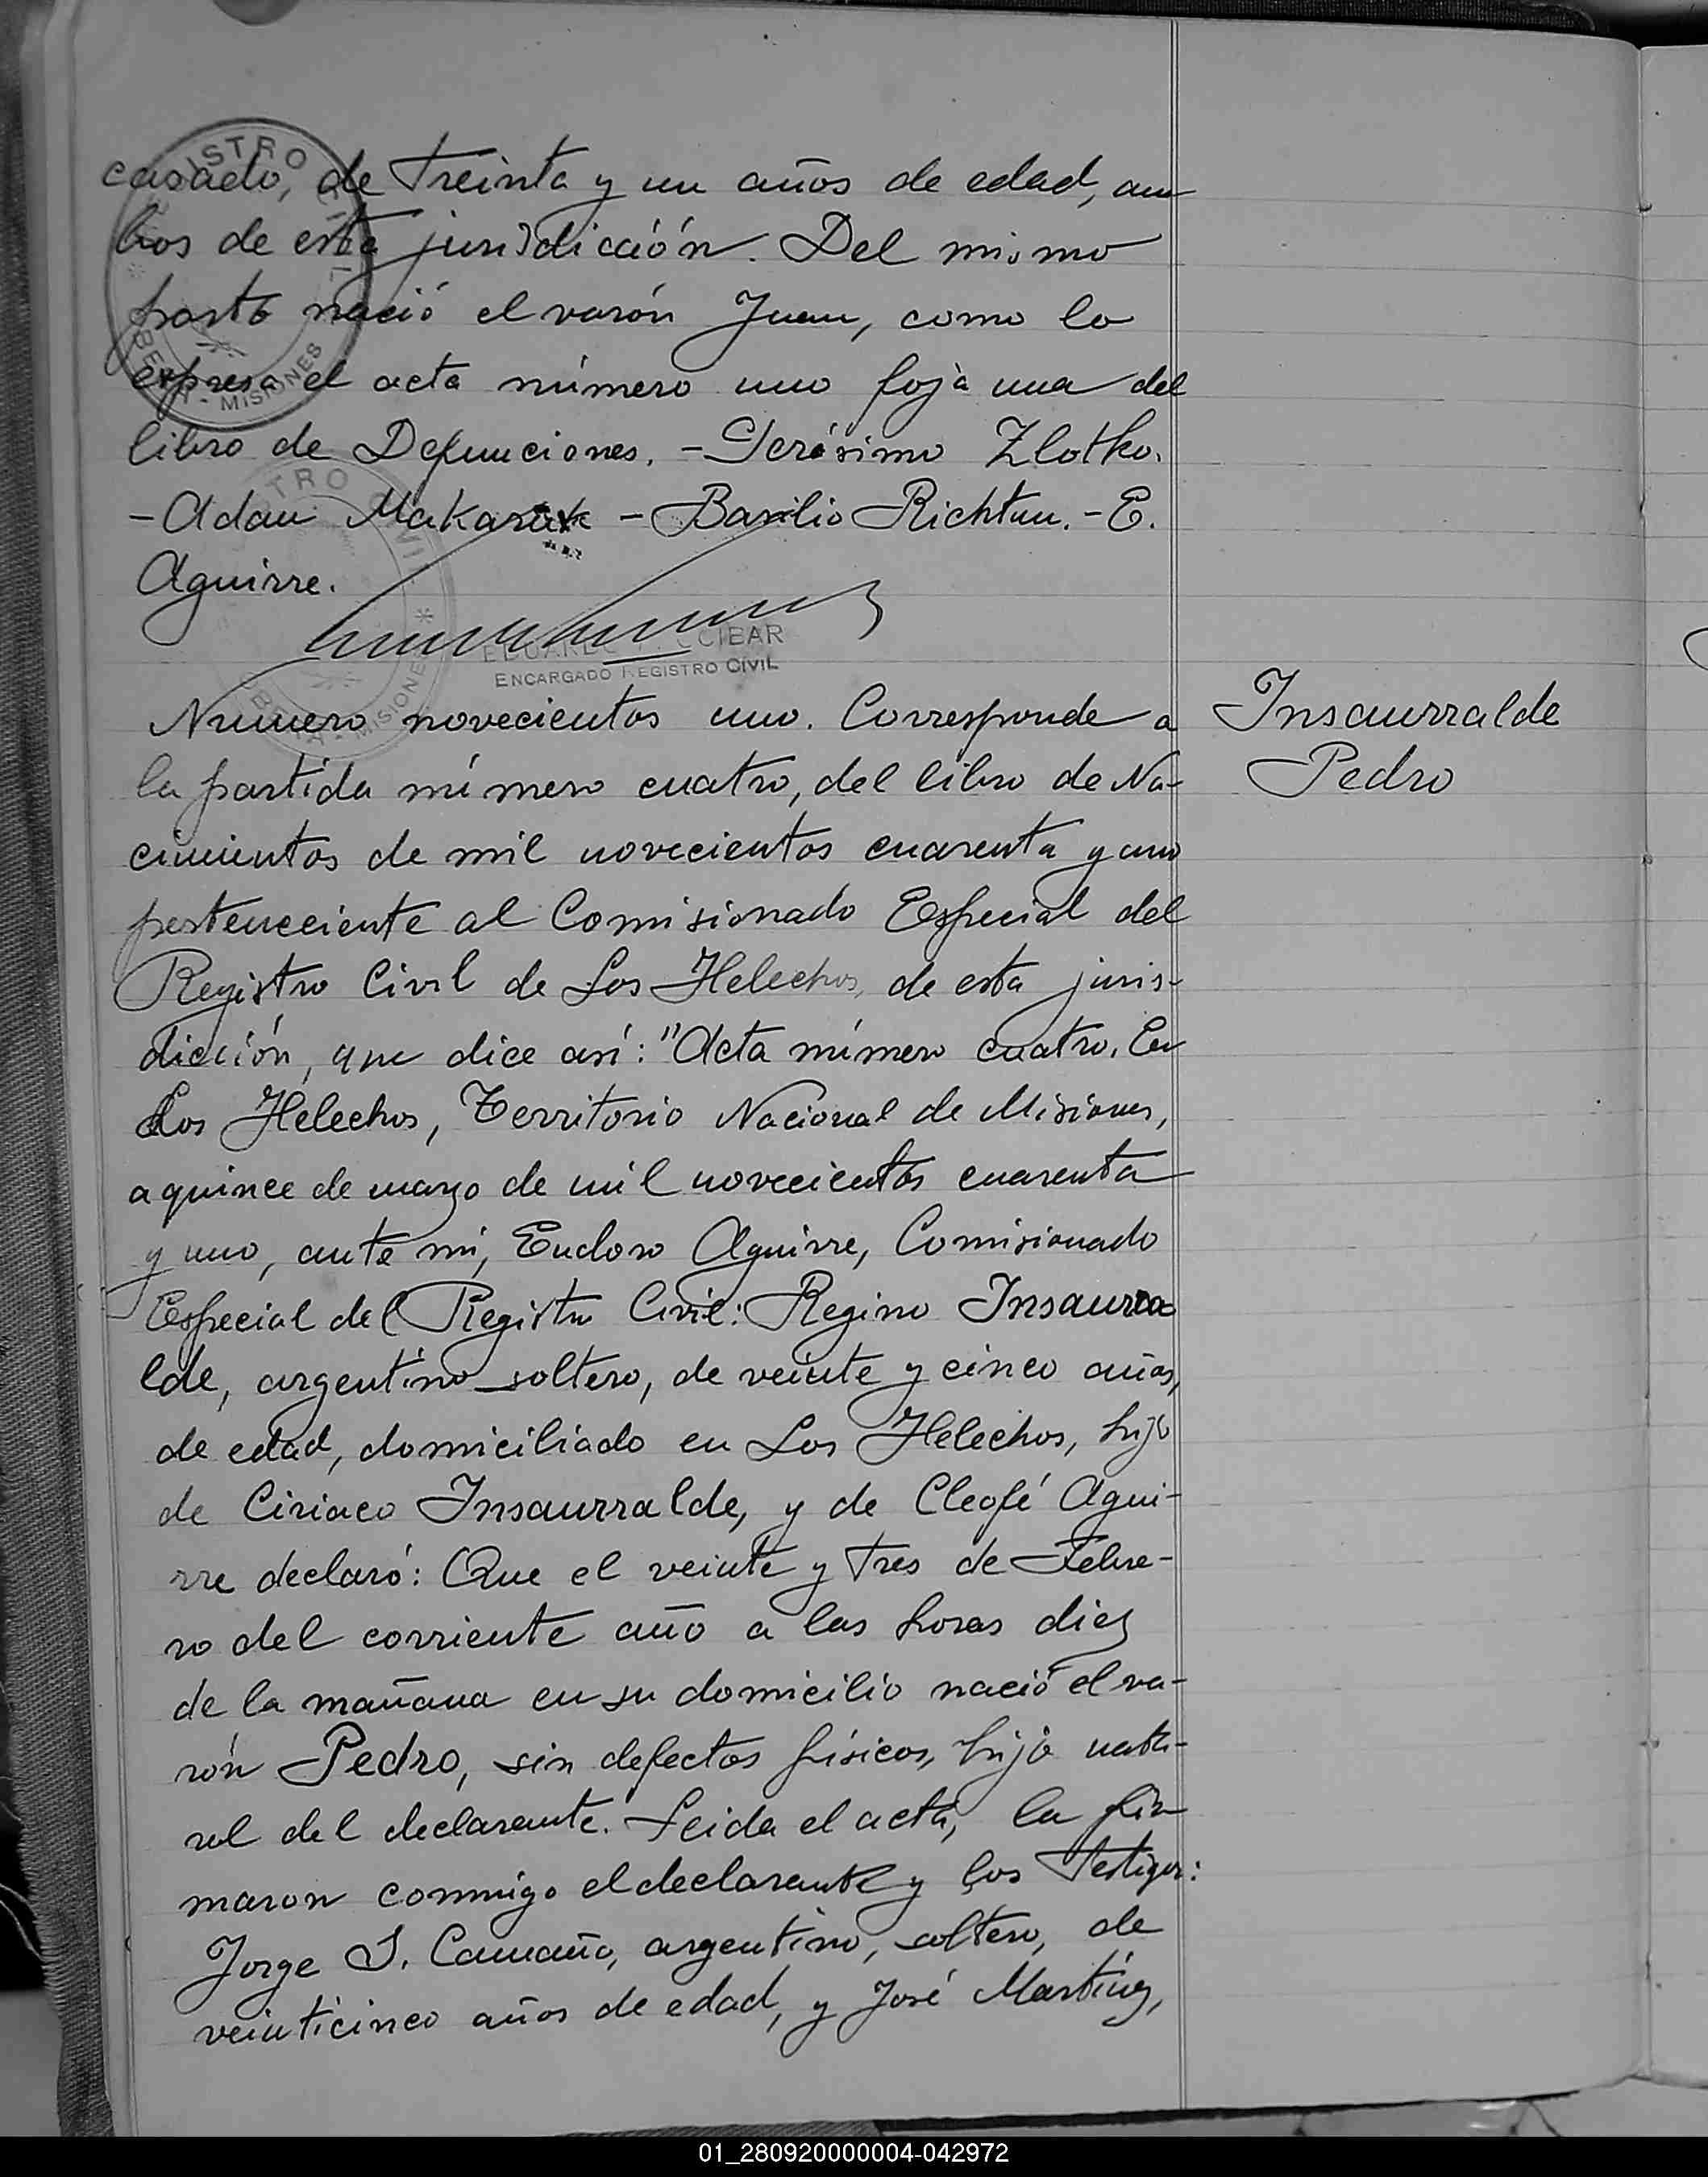 casado, de treinta y un años de edad, am
bos de esta jurisdicción. Del mismo
parto nació el varón Juan, como lo
expresa el acta número uno foja una del
libro de Defunciones. - Gerásimo Zlotko.
- Adan Makaruk - Basilio Richtun. - E.
Aguirre.
CIBAR
ENCARGADO REGISTRO CIVIL
Numero novecientos uno. Corresponde a
la partida número cuatro, del libro de Na-
cimientos de mil novecientos cuarenta y uno
perteneciente al Comisionado Especial del
Registro Civil de Los Helechos, de esta juris-
dicción, que dice así: "Acta número cuatro. En
Los Helechos, Territorio Nacional de Misiones,
a quince de marzo de mil novecientos cuarenta
y uno, ante mi, Eudoro Aguirre, Comisionado
Especial del Registro Civil: Regino Insaurra
lde, argentino soltero, de veinte y cinco años,
de edad, domiciliado en Los Helechos, hijo
de Ciriaco Insaurralde, y de Cleofé Agui-
rre declaró: Que el veinte y tres de Febre-
ro del corriente año a las horas diez
de la mañana en su domicilio nació el va-
rón Pedro, sin defectos físicos, hijo natu-
ral del declarante. Leida el acta, la fir
maron conmigo el declarante y los testigos:
Jorge S. Camaño, argentino, soltero, de
veinticinco años de edad, y José Martínez,
Insaurralde
Pedro
REGISTRO CIVIL
* OBERA - MISIONES *
01_280920000004-042972